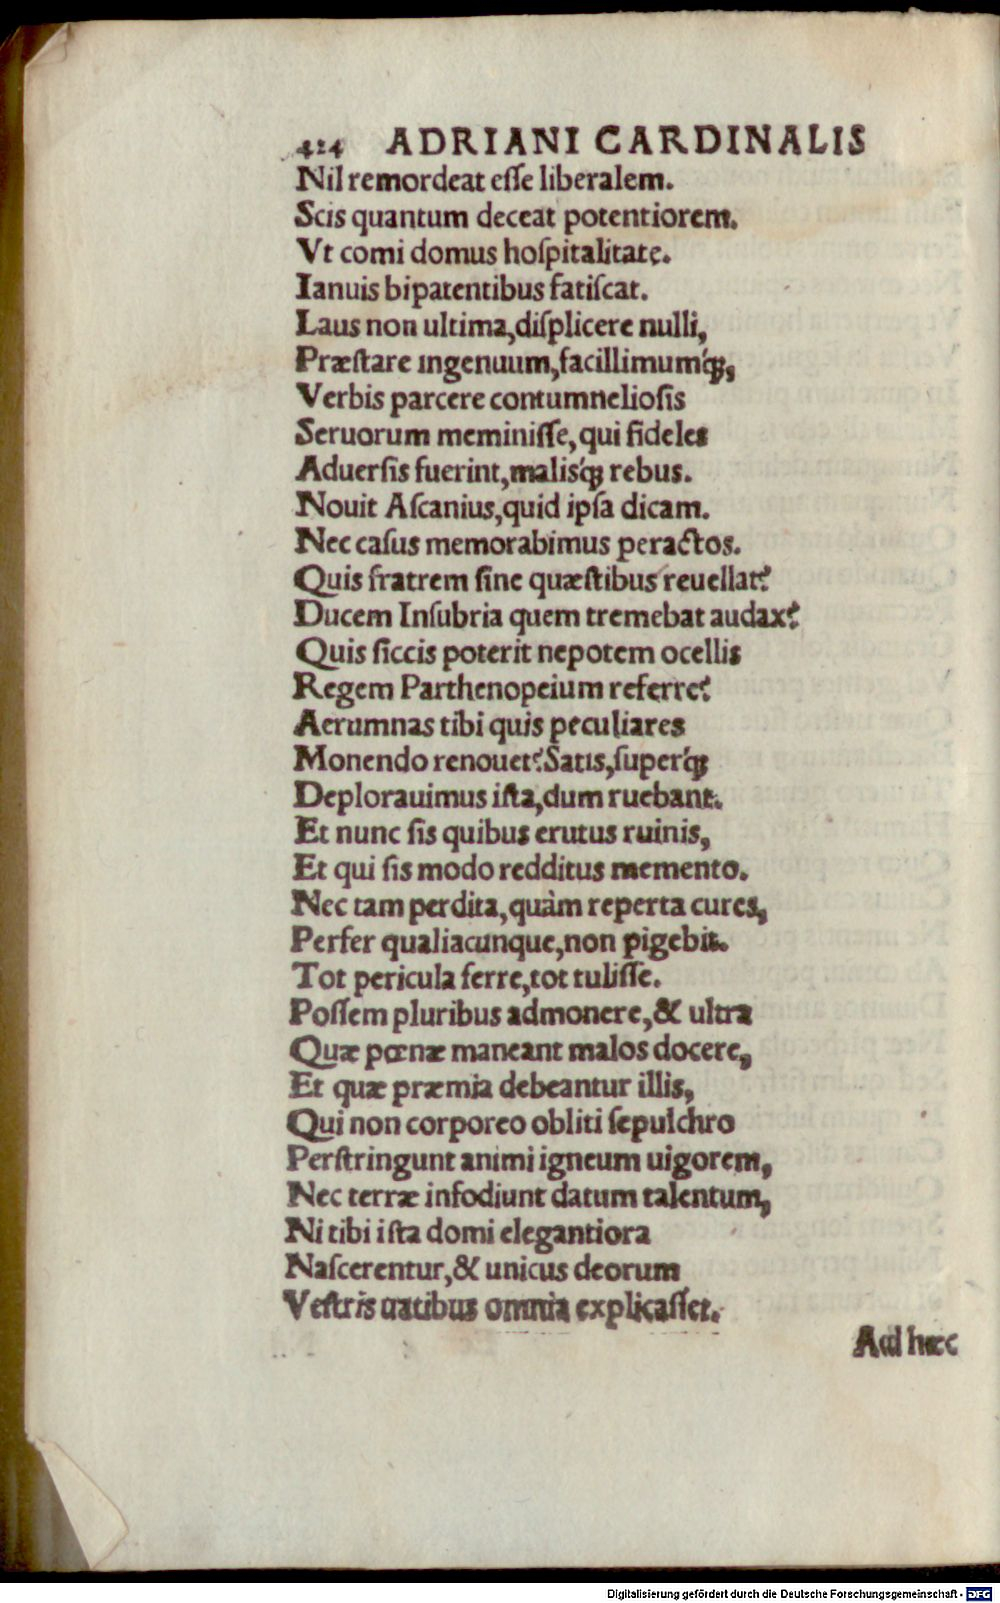 424 ADRIANI CARDINALIS
Nil remordeat eſſe liberalem.
Scis quantum deceat potentiorem.
Vt comi domus hoſpitalitate.
Ianuis bipatentibus fatiſcat.
Laus non ultima,diſplicere nulli,
Præſtare ingenuum,facillimumq́ꝫ,
Verbis parcere contumneliosis
Seruorum meminiſſe, qui fideles
Aduerſis fuerint,malisq́ꝫ rebus.
Nouit Aſcanius,quid ipſa dicam.
Nec caſus memorabimus peractos.
Quis fratrem ſine quæſtibus reuellat?
Ducem Inſubria quem tremebat audax?
Quis ſiccis poterit nepotem ocellis
Regem Parthenopeium referre?
Aerumnas tibi quis peculiares
Monendo renouet?Satis,ſuperq́ꝫ
Deplorauimus iſta,dum ruebant.
Et nunc ſis quibus erutus ruinis,
Et qui ſis modo redditus memento.
Nec tam perdita,quàm reperta cures,
Perfer qualiacunque,non pigebit.
Tot pericula ferre,tot tuliſſe.
Poſſem pluribus admonere,& ultra
Quæ pœnæ maneant malos docere,
Et quæ præmia debeantur illis,
Qui non corporeo obliti ſepulchro
Perſtringunt animi igneum uigorem,
Nec terræ infodiunt datum talentum,
Ni tibi iſta domi elegantiora
Naſcerentur,& unicus deorum
Veſtris uatibus omnia explicaſſet.
Ad hæc
Digitalisierung gefördert durch die Deutsche Forschungsgemeinschaft - DFG